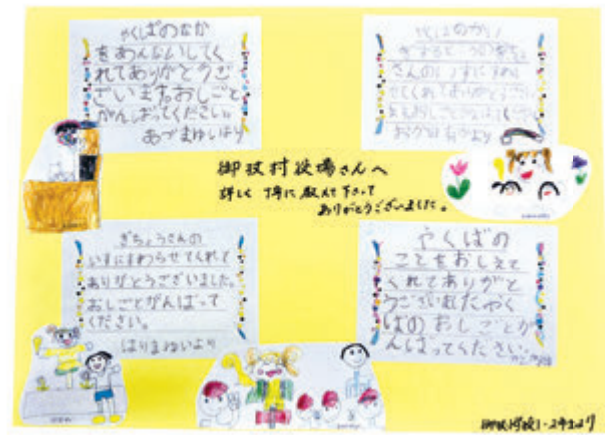 やくばのなか
をあんないしてく
れてありがとうご
ざいます。おしごと
がんばってください。
あづまゆいより
さんのいすにすわら
せてくれてありがとうござい
御杖村役場さんへ
詳しく 丁寧に 教えて下さって
ありがとうございました。
ぎちょうさんの
いすにすわらせてくれて
ありがとうございました。
おしごとがんばって
ください。
はりまめいより
やくばの
ことをおしえて
くれてありがと
うございましたやく
ばのおしごとが
んばってください。
御杖小学校1・2年生より